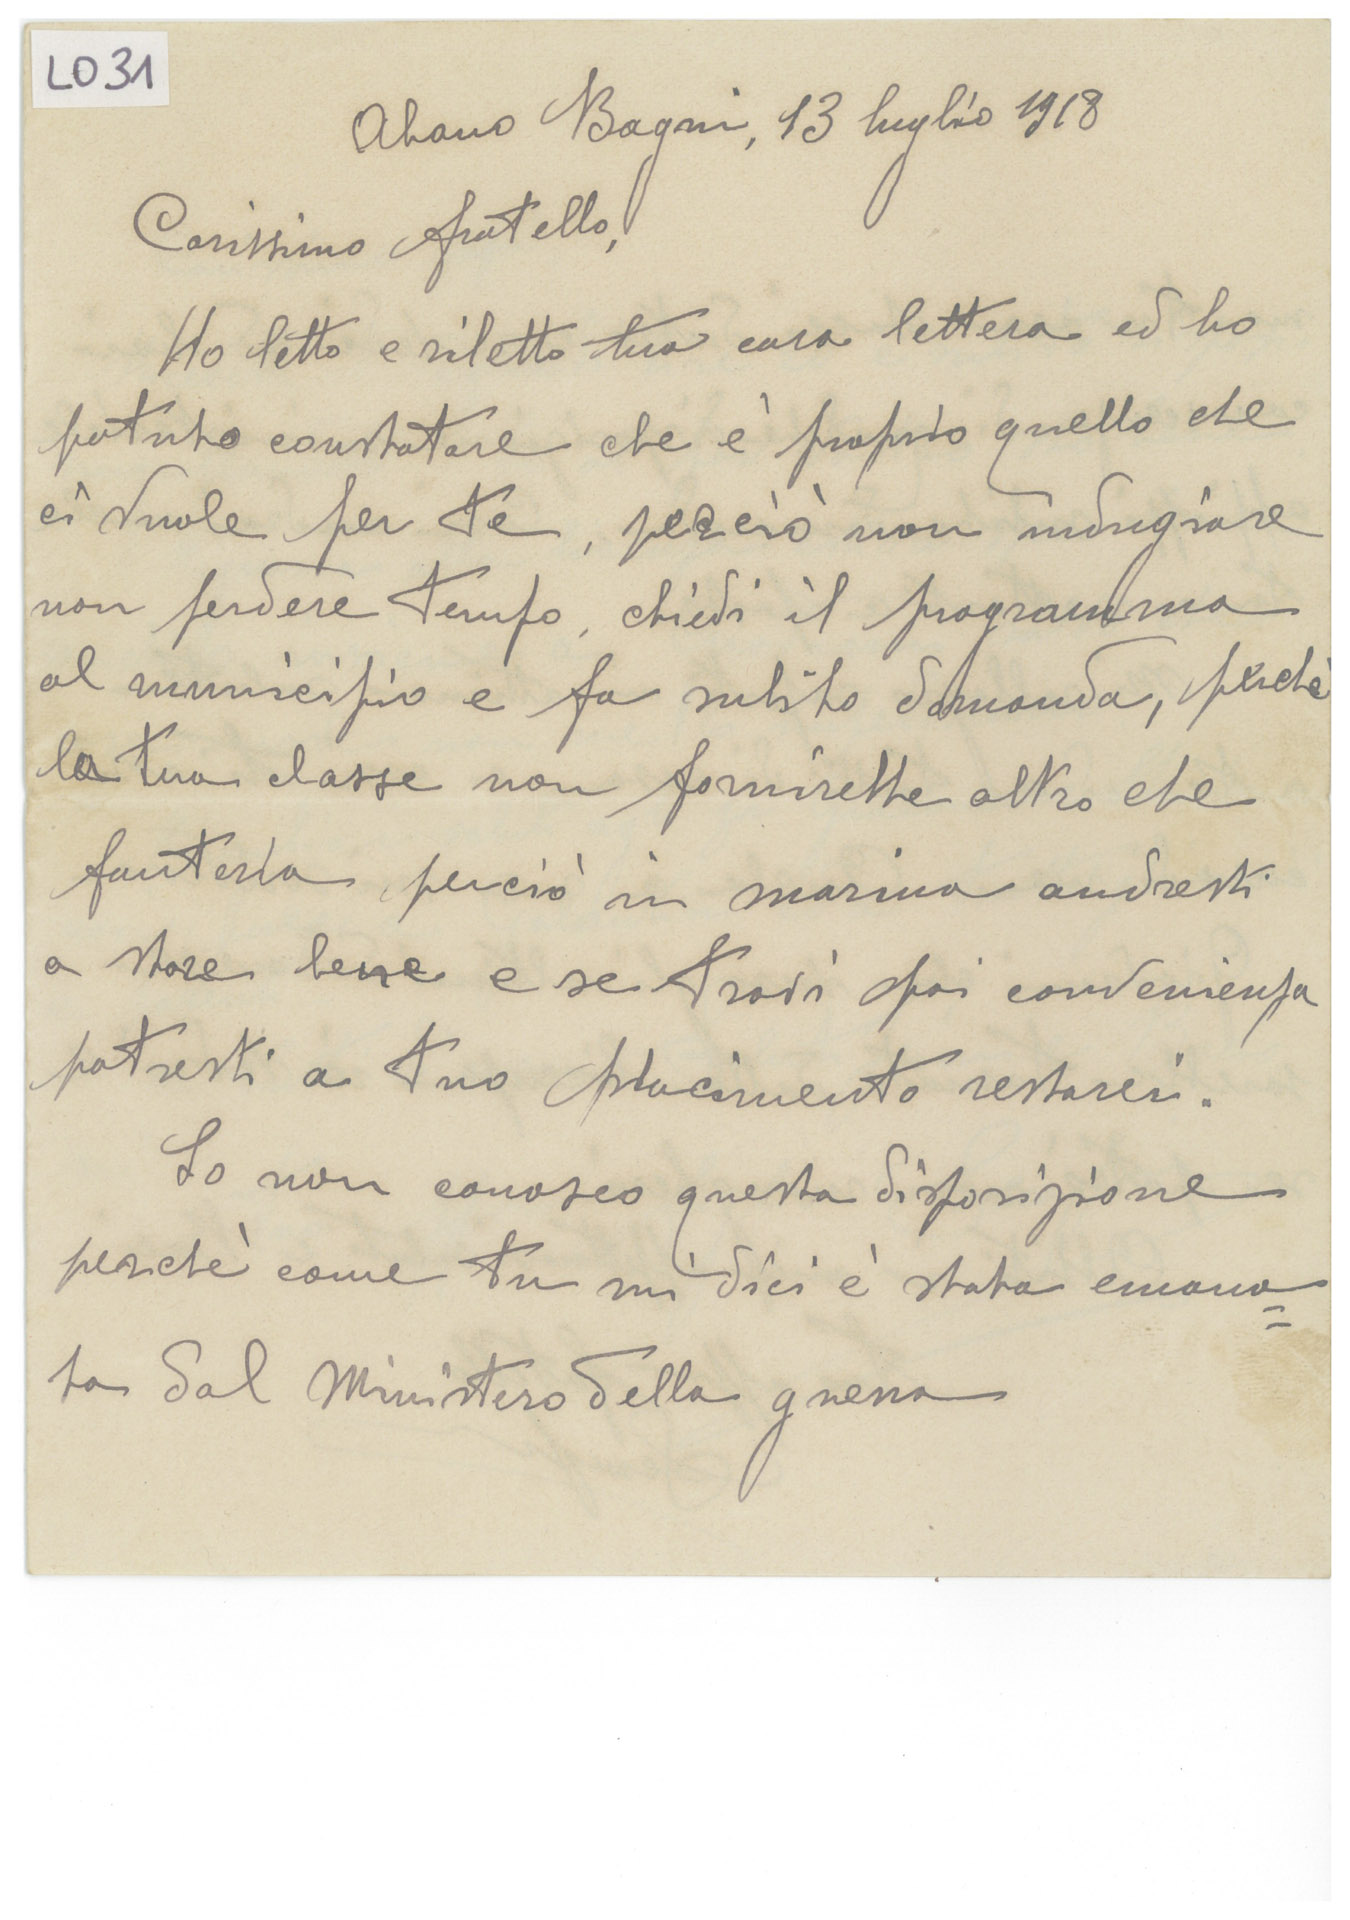 LO31
Abano Bagni, 13 luglio 1918
Carissimo fratello,
Ho letto e riletto tua cara lettera ed ho
potuto constatare che è proprio quello che
ci vuole per te, perciò non indugiare
non perdere tempo, chiedi il programma
al municipio e fa subito domanda, perchè
la tua classe non fornirebbe altro che
fanteria perciò in marina andresti
a stare bene e se trovi poi convenienza
potresti a tuo piacimento restarci.
Io non conosco questa disposizione
perchè come tu mi dici è stata emana=
ta dal Ministero della guerra